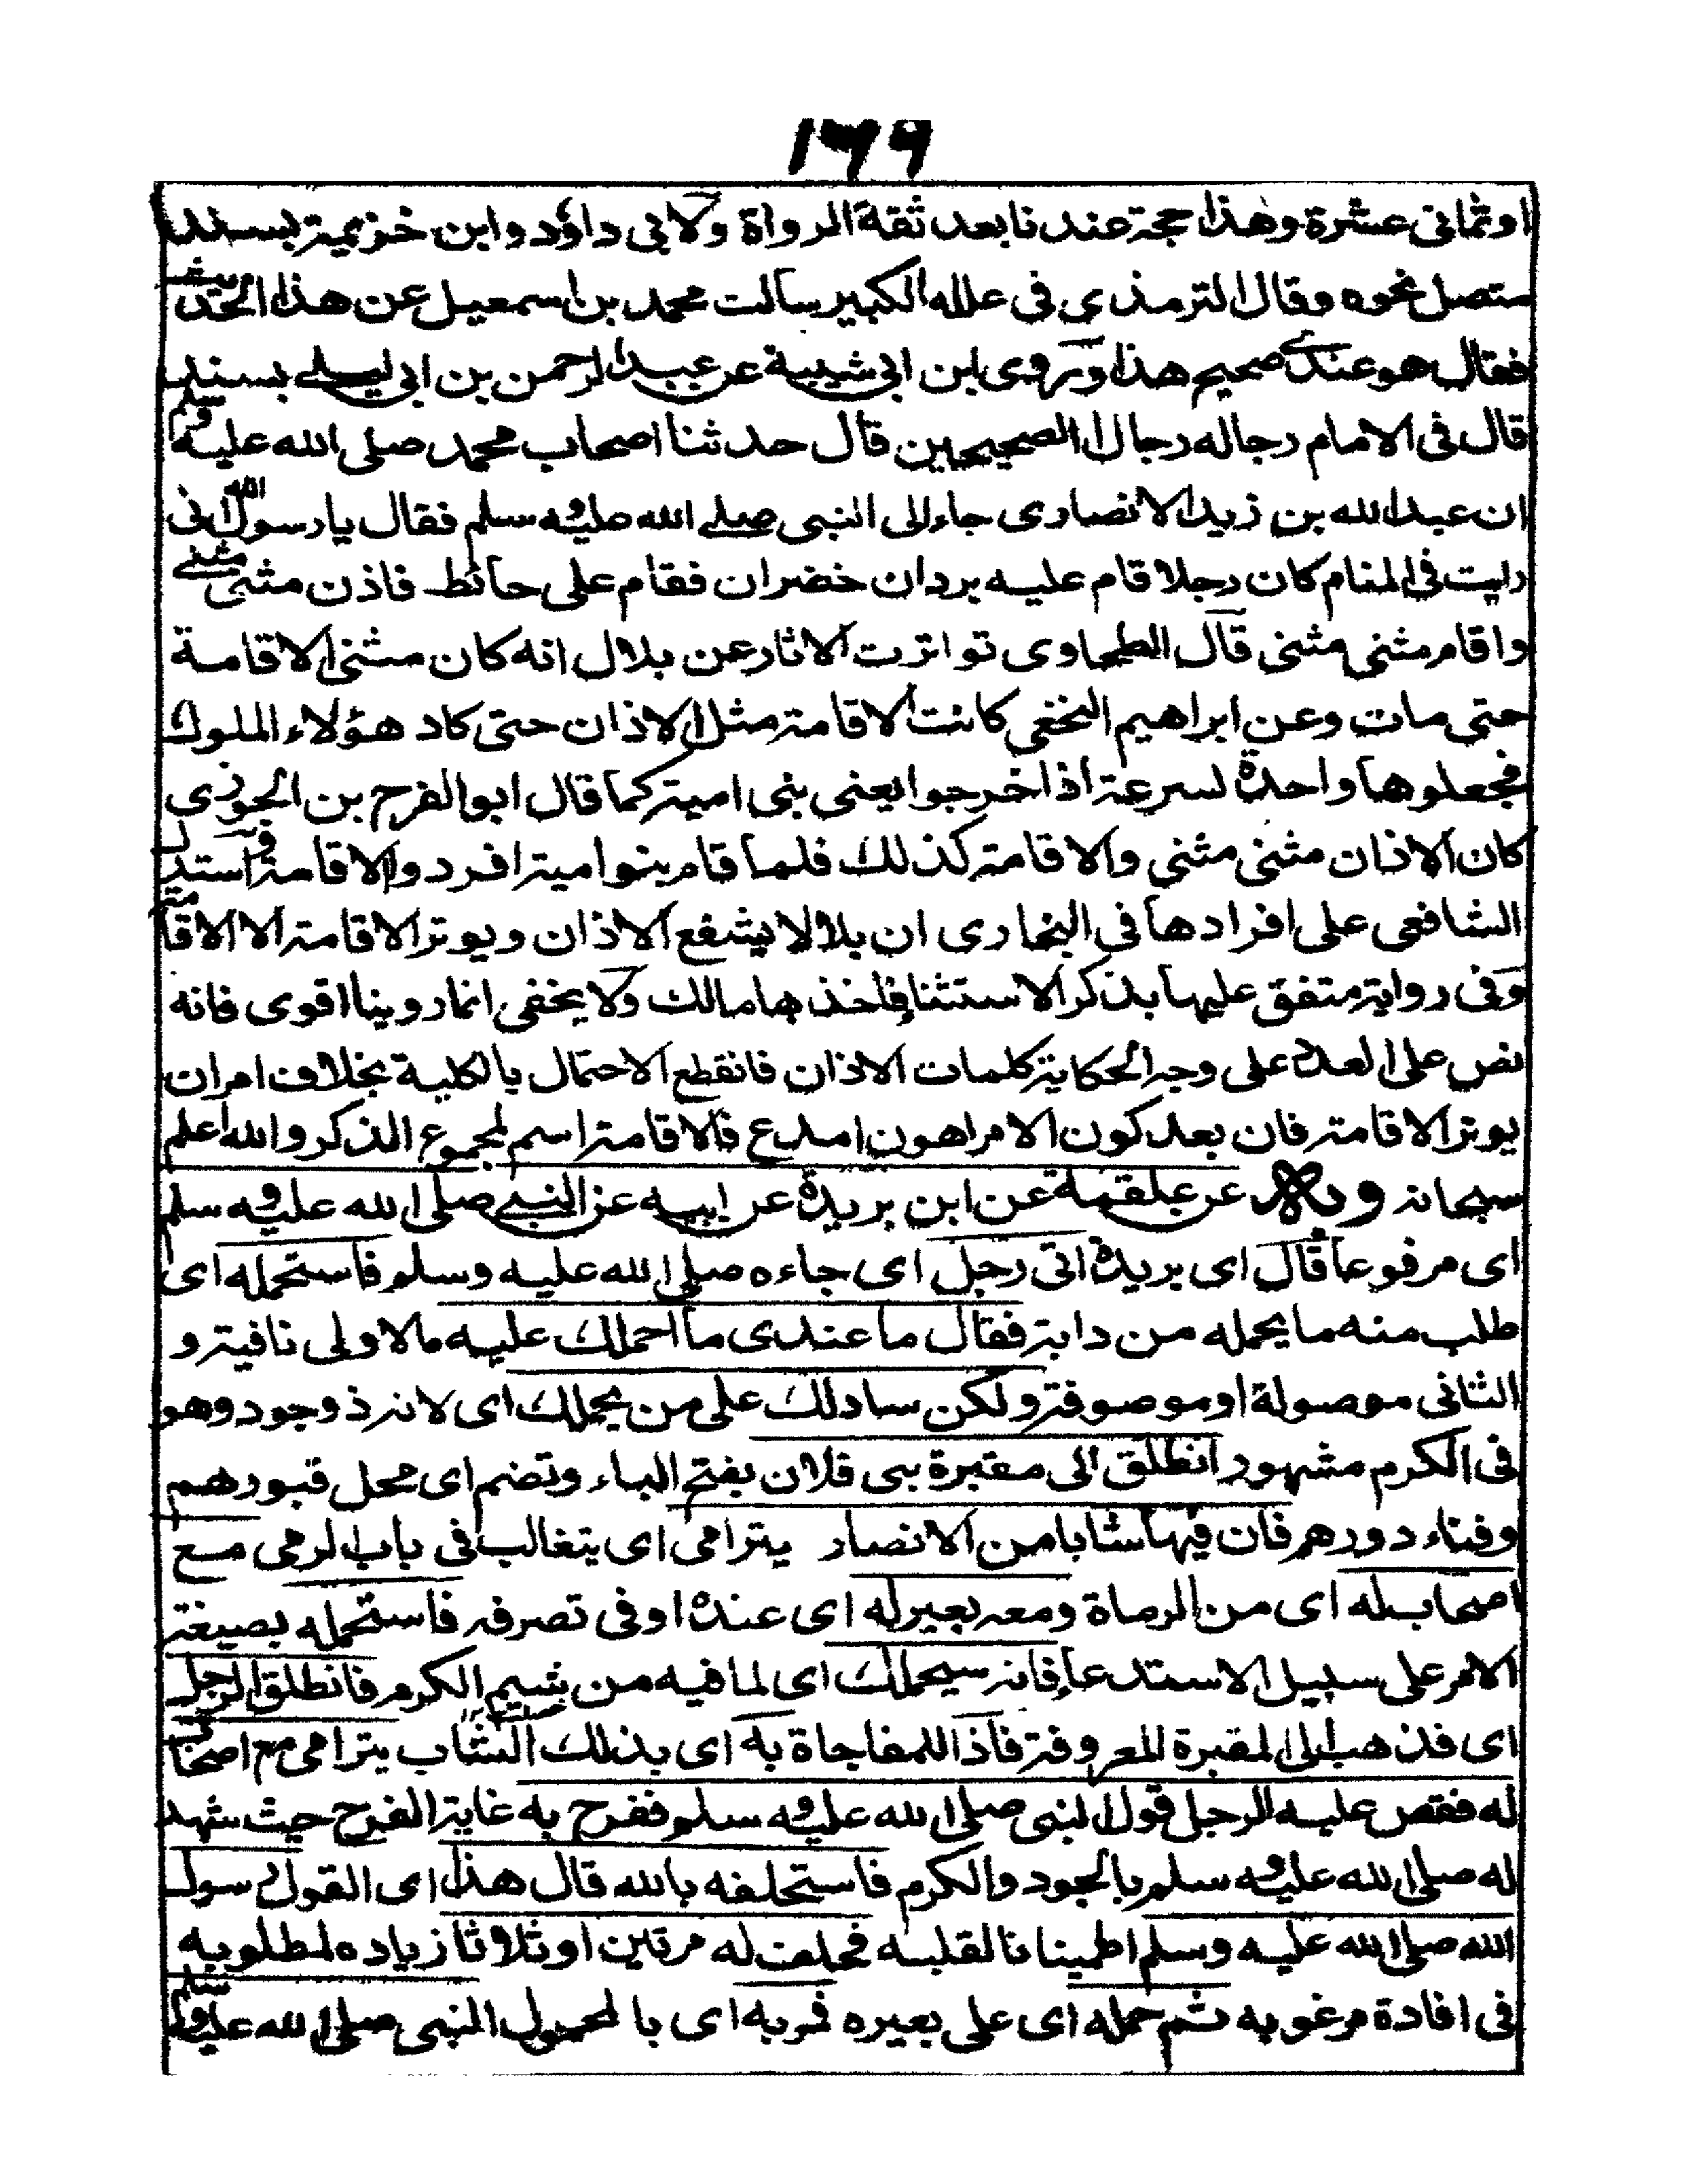 ١٦٩
اوثمانى عشرة وهذا حجة عندنا بعد ثقة الرواة ولابى داؤد وابن خزيمة بسند
متصل نحوه وقال الترمذي فى علله الكبير سالت محمد بن اسمعيل عن هذا الحديث
فقال هو عندى صحيح هذا وروى ابن ابى شيبة عن عبد الرحمن بن ابى ليلے بسند
قال فى الامام رجاله رجال الصحيحين قال حدثنا اصحاب محمد صلى الله عليه وسلم
ان عبد الله بن زيد الانصارى جاء الى النبى صلے الله عليه وسلم فقال يا رسول الله انى
رايت فى المنام كان رجلا قام عليه بردان خضران فقام على حائط فاذن مثنى مثنے
واقام مثنى مثنى قال الطحاوى تواترت الاثار عن بلال انه كان مثنى الاقامة
حتى مات وعن ابراهيم النخعي كانت الاقامة مثل الاذان حتى كاد هؤلاء الملوك
فجعلوها واحدة لسرعة اذا خرجوا يعنى بنى امية كما قال ابو الفرج بن الجوزى
كان الاذان مثنى مثنى والاقامة كذلك فلما قام بنو امية افردوا الاقامة واستدل
الشافعى على افرادها فى البخارى ان بلالا يشفع الاذان ويوتر الاقامة الا الاقامة
وفى رواية متفق عليها بذكر الاستثنا فاخذها مالك ولا يخفى انما روينا اقوى فانه
نص على العدد على وجه الحكاية كلمات الاذان فانقطع الاحتمال بالكلية بخلاف امر ان
يوتر الاقامة فان بعد كون الامر اهون امدع فالاقامة اسم لمجموع الذكر والله اعلم
سبحانه وبه عن علقمة عن ابن بريدة عن ابيه عن النبے صلى الله عليه وسلم
اى مرفوعا قال اى بريدة اتى رجل اى جاءه صلى الله عليه وسلم فاستحمله اى
طلب منه ما يحمله من دابة فقال ما عندى ما احملك عليه ما الاولى نافية و
الثانى موصولة او موصوفة ولكن سادلك على من يحملك اى لانه ذو جود وهو
فى الكرم مشهود انطلق الى مقبرة بنى فلان بفتح الباء وتضم اى محل قبورهم
وفناء دورهم فان فيها شابا من الانصار يترامى اى يتغالب فى باب الرمى مع
اصحاب له اى من الرماة ومعه بعير له اى عنده او فى تصرفه فاستحمله بصيغة
الامر على سبيل الاستدعا فانه سيحملك اى لما فيه من شيم الكرم فانطلق الرجل
اى فذهب الى المقبرة المعروفة فاذا للمفاجاة به اى بذلك الشاب يترامى مع اصحاب
له فقص عليه الرجل قول النبى صلى الله عليه وسلم ففرح به غاية الفرح حيث شهد
له صلى الله عليه وسلم بالجود والكرم فاستحلفه بالله قال هذا اى القول رسول
الله صلى الله عليه وسلم اطمينانا لقلبه فحلف له مرتين او ثلاثا زياده لمطلوبه
فى افادة مرغوبه ثم حمله اى على بعيره فمر به اى با لمحمول النبى صلى الله عليه وسلم